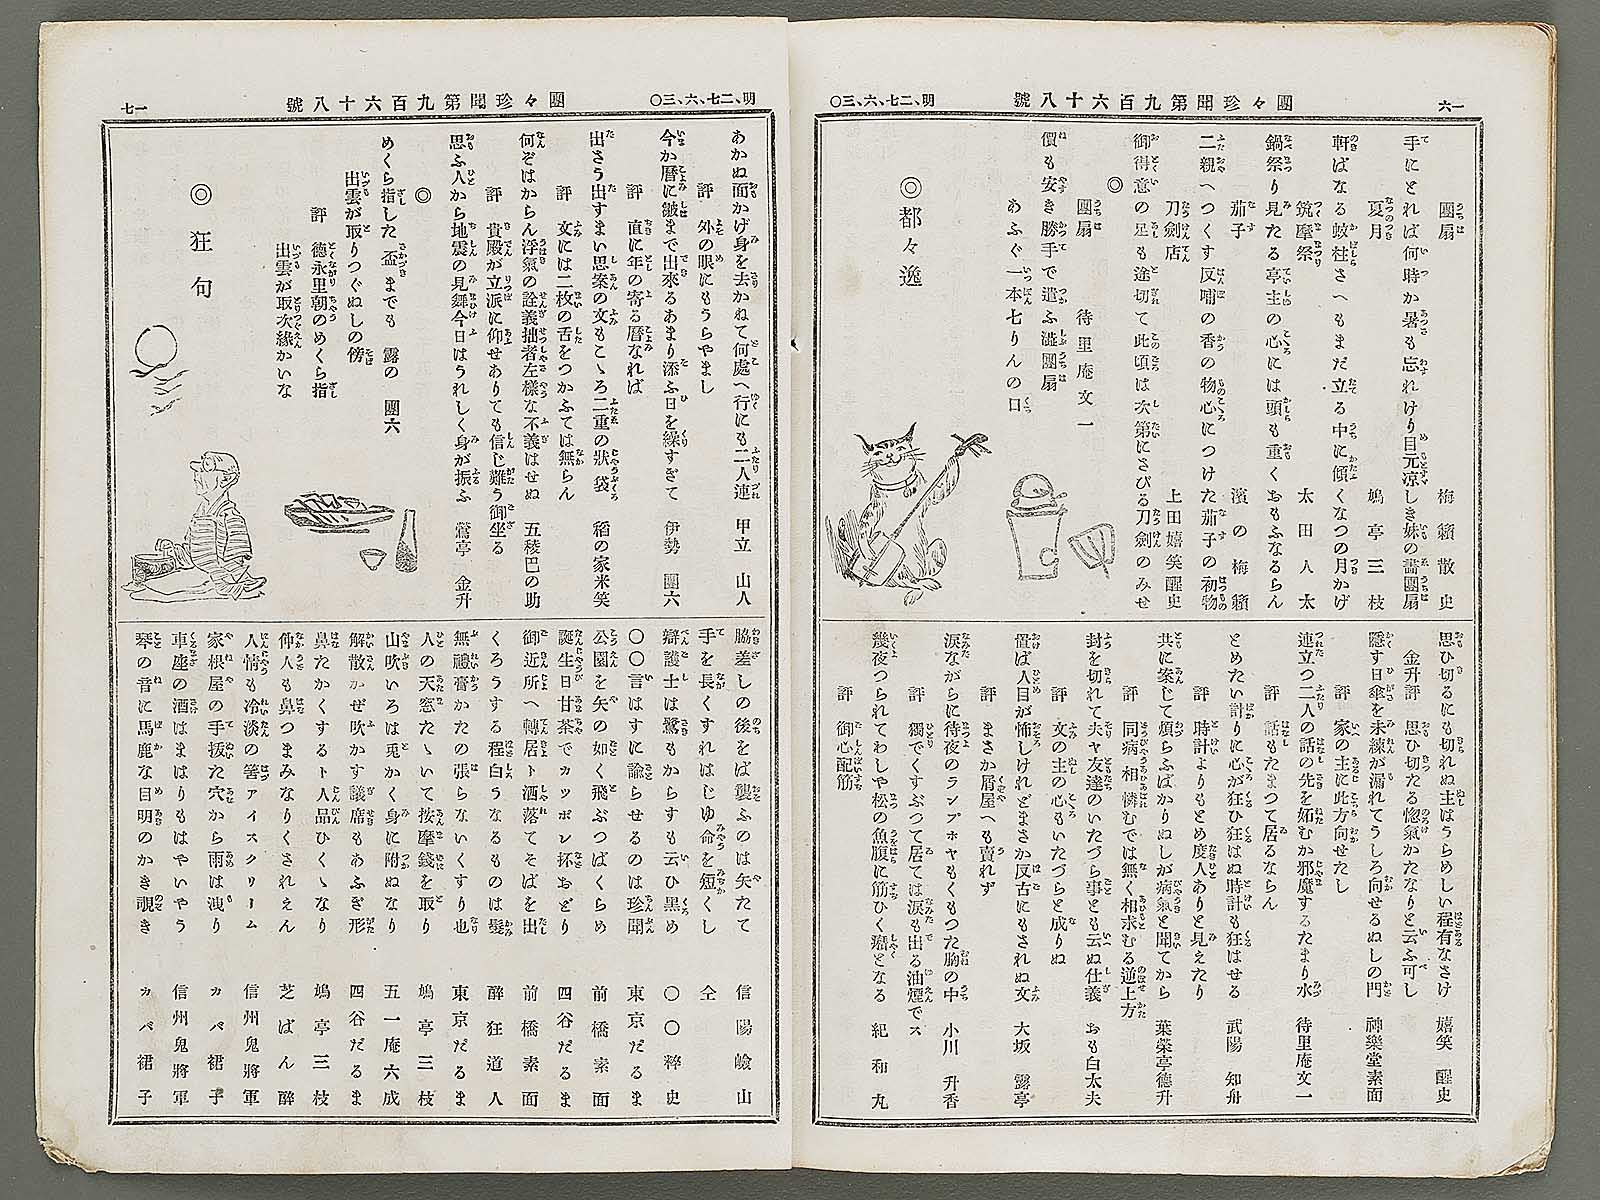 一六
團々珍聞第九百六十八號
明、二七、六、三〇
團扇
梅籟散史
手にとれば何時か暑も忘れけり目元凉しき妹の畵團扇
夏月
鳩亭三枝
軒ばなる蚊柱さへもまだ立る中に傾くなつの月かげ
筑摩祭
太田人太
鍋祭り見たる亭主の心には頭も重くおもふなるらん
茄子
濱の梅籟
二親へつくす反哺の香の物心につけた茄子の初物
刀劍店
上田嬉笑醒史
御得意の足も途切て此頃は次第にさびる刀劍のみせ
◎
團扇
待里庵文一
價も安き勝手で遣ふ澁團扇
あふぐ一本七りんの口
◎都々逸
思ひ切るにも切れぬ主はうらめしい程有なさけ 嬉笑醒史
金升評 思ひ切たる惚氣かたなりと云ふ可し
隱す日傘を未練が漏れてうしろ向せるぬしの門 神樂堂素面
評 家の主に此方向せたし
連立つ二人の話の先を妬むか邪魔するたまり水 待里庵文一
評 話もたまつて居るならん
とめたい計りに心が狂ひ狂はぬ時計も狂はせる 武陽 知舟
評 時計よりもとめ度人ありと見えたり
共に案じて煩らふばかりぬしが病氣と聞てから 葉榮亭德升
評 同病相憐むでは無く相求むる逆上方
封を切れて夫ヤ友達のいたづら事とも云ぬ仕義 おも白太夫
評 文の主の心もいたづらと成りぬ
置ば人目が怖しけれどまさか反古にもされぬ文 大坂 露亭
評 まさか屑屋へも賣れず
淚ながらに待夜のランプホヤもくもつた胸の中 小川 升香
評 獨でくすぶつて居ては淚も出る油煙でス
幾夜つられてわしや松の魚腹に筋ひく癪となる 紀和丸
評 御心配筋
明、二七、六、三〇
團々珍聞第九百六十八號
一七
あかぬ面かげ身を去かねて何處へ行にも二人連 甲立 山人
評 外の眼にもうらやまし
今か曆に皺まで出來るあまり添ふ日を繰すぎて 伊勢 團六
評 直に年の寄る曆なれば
出さう出すまい思案の文もこゝろ二重の狀袋 稻の家米笑
評 文には二枚の舌をつかふては無らん
何ぞはからん浮氣の詮義拙者左樣な不義はせぬ 五稜巴の助
評 貴殿が立派に仰せありても信じ難う御坐る
思ふ人から地震の見舞今日はうれしく身が振ふ 鶯亭 金升
◎
めくら指した盃までも 露の 團六
出雲が取りつぐぬしの傍
評 德永里朝のめくら指
出雲が取次緣かいな
◎狂句
脇差しの後をば襲ふのは矢たて 信陽嶮山
手を長くすればじゆ命を短くし 仝
辯護士は鷺もからすも云ひ黑め 〇〇粹史
〇〇言はすに諭らせるのは珍聞 東京だるま
公園を矢の如く飛ぶつばくらめ 前橋素面
誕生日甘茶でカッポレ抔おどり 四谷だるま
御近所へ轉居ト洒落てそばを出 前橋素面
くろうする程白うなるものは髮 醉狂道人
無禮膏かたの張らないくすり也 東京だるま
人の天窓たゝいて按摩錢を取り 鳩亭三枝
山吹いろは兎かく身に附ぬなり 五一庵六成
解散かぜ吹かす議席もあふぎ形 四谷だるま
鼻たかくするト人品ひくゝなり 鳩亭三枝
仲人も鼻つまみなりくされえん 芝ばん醉
人情も冷淡の筈アイスクリーム 信州鬼將軍
家根屋の手拔た穴から雨は洩り カバ裙子
車座の酒はまはりもはやいやう 信州鬼將軍
琴の音に馬鹿な目明のかき覗き カバ裙子